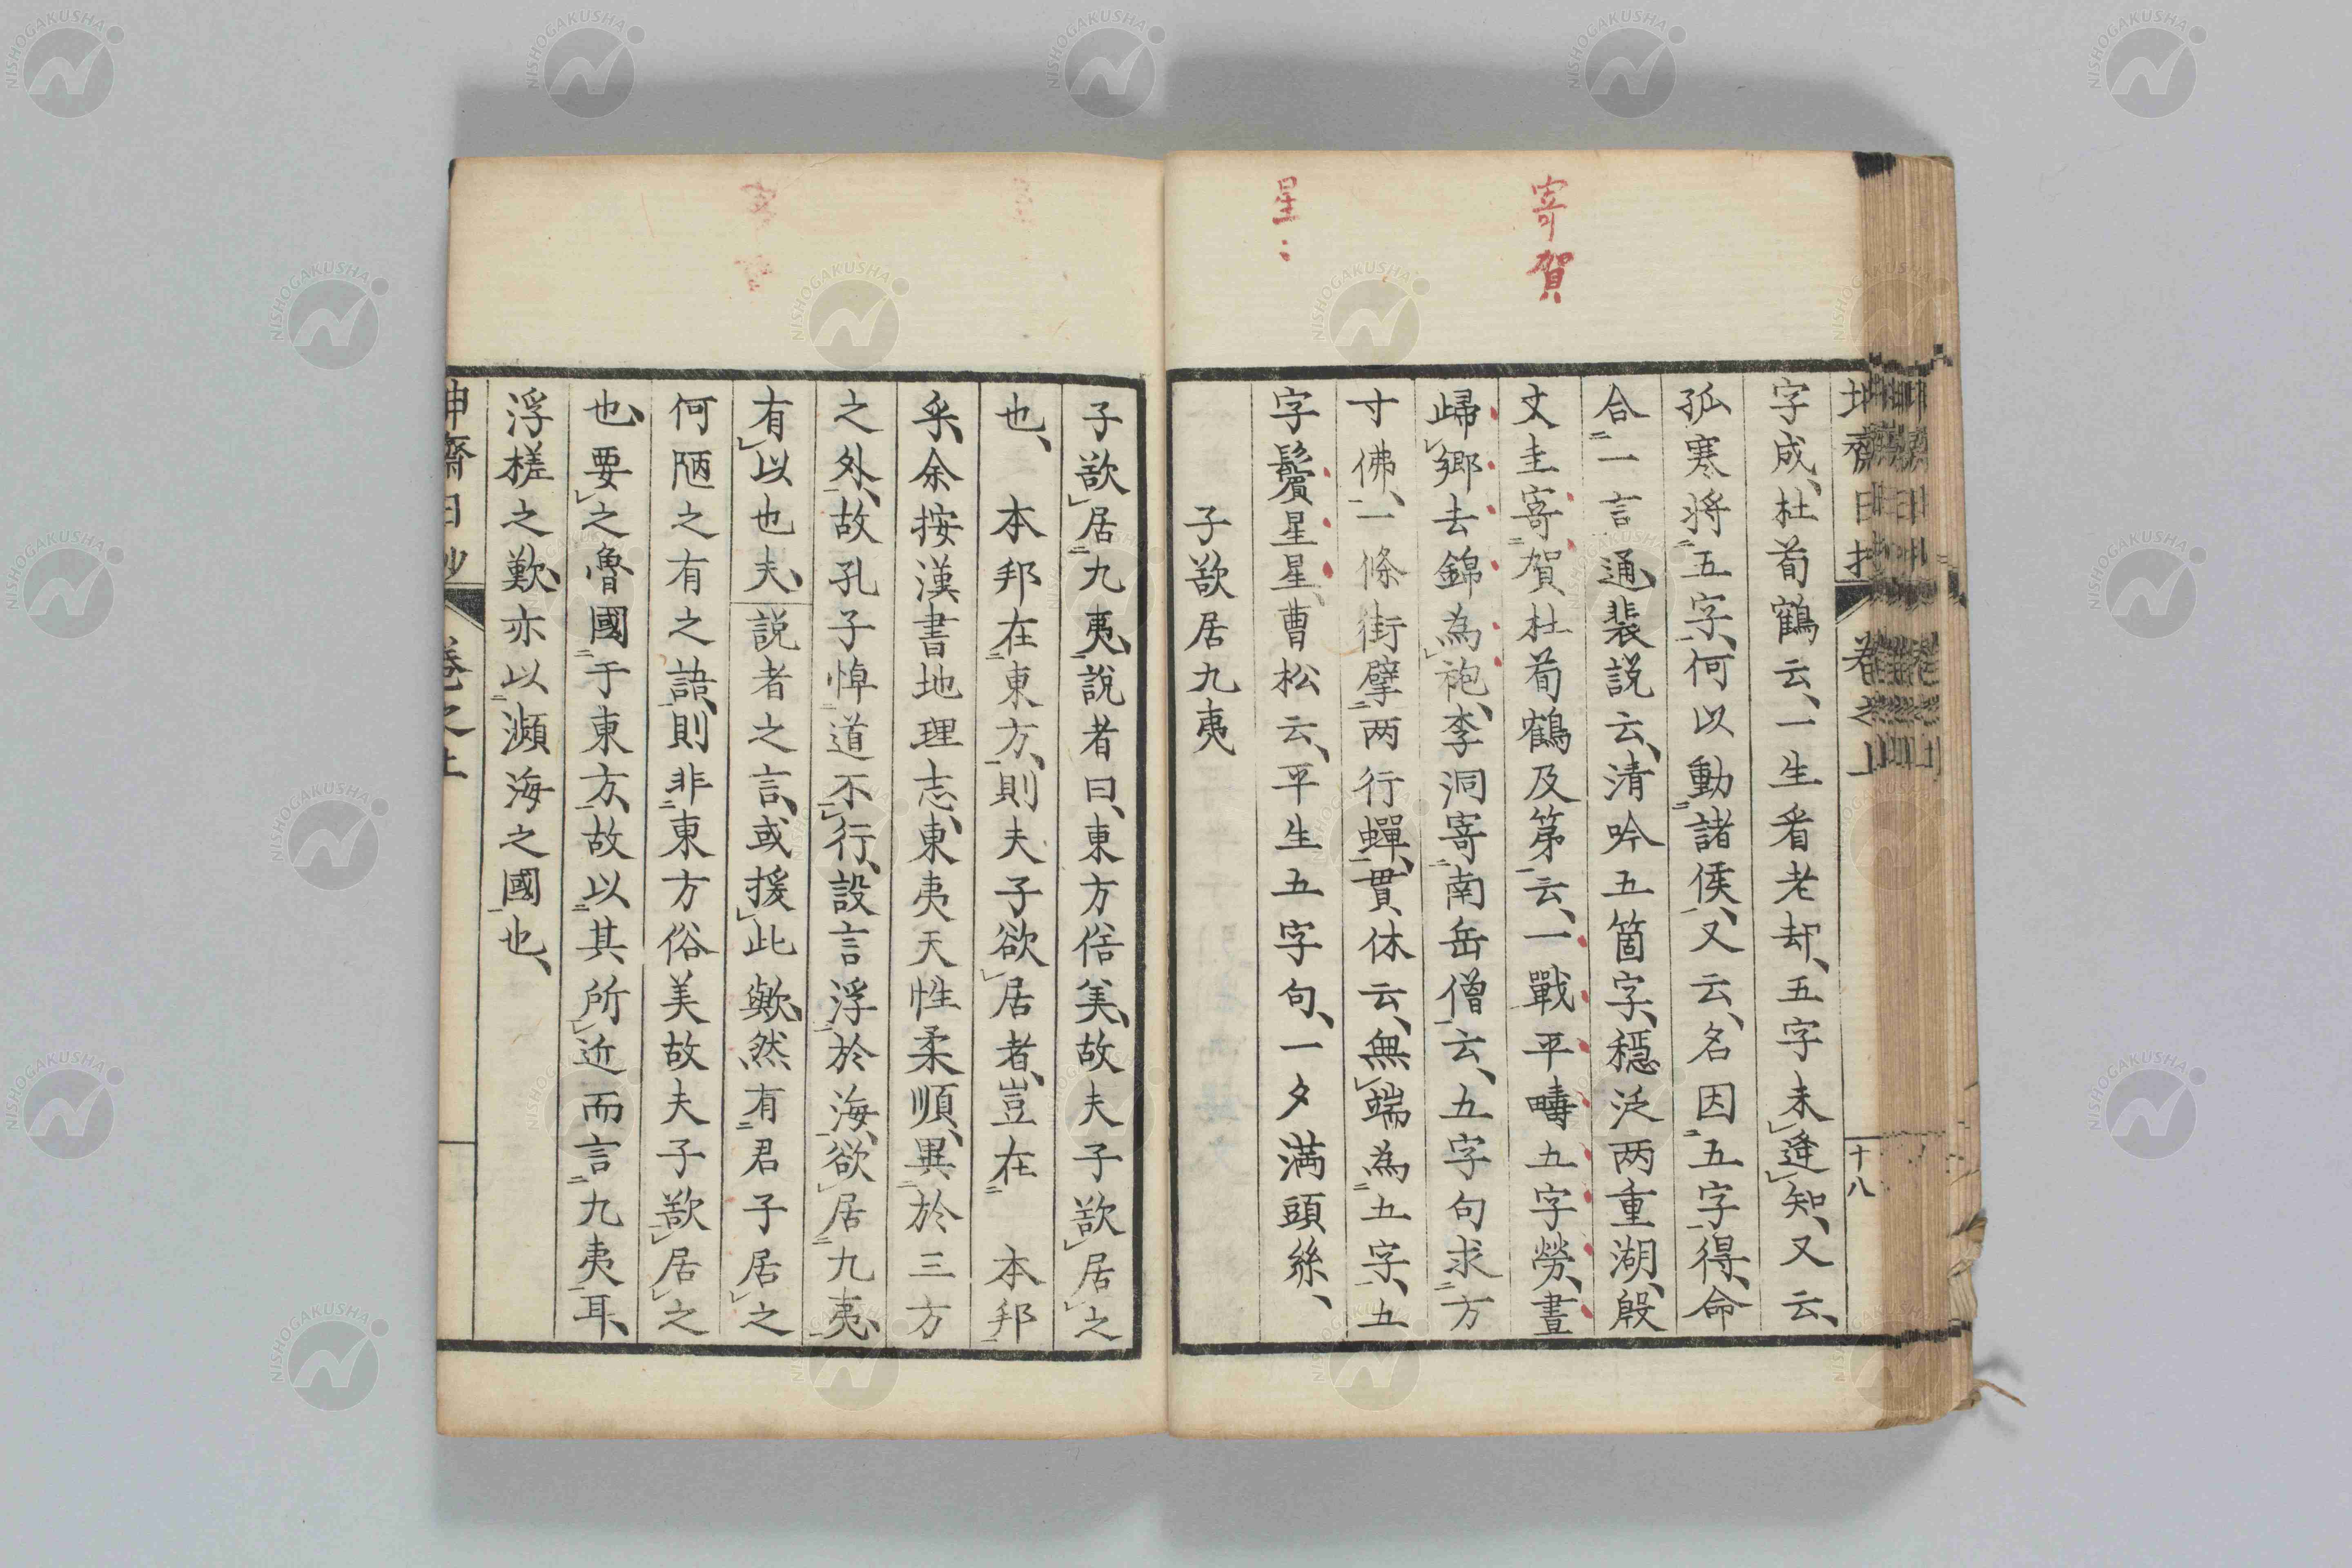 寄賀
星〻
字成、杜荀鶴云、一生看老却、五字未逢知、又云、
孤寒将五字、何以動諸侯、又云、名因五字得、命
合一言通、裴説云、清吟五箇字、穩泛両重湖、殷
文圭寄賀杜荀鶴及第云、一戰平疇五字勞、晝
歸郷去錦為袍、李洞寄南岳僧云、五字句求方
寸佛、一條街擘両行蟬、貫休云、無端為五字、五
字鬢星星、曹松云、平生五字句、一夕満頭絲、
子欲居九夷
十八
子欲居九夷、說者曰、東方俗美、故夫子欲居之
也、 本邦在東方、則夫子欲居者、豈在 本邦
乎、余按漢書地理志、東夷天性柔順、異於三方
之外、故孔子悼道不行、設言浮於海、欲居九夷、
有以也夫、説者之言、或援此歟、然有君子居之
何陋之有之語、則非東方俗美故夫子欲居之
也、要之魯國于東方、故以其所近而言九夷耳、
浮槎之歎、亦以瀕海之國也、
坤齋日抄 卷之上
NISHOGAKUSHA